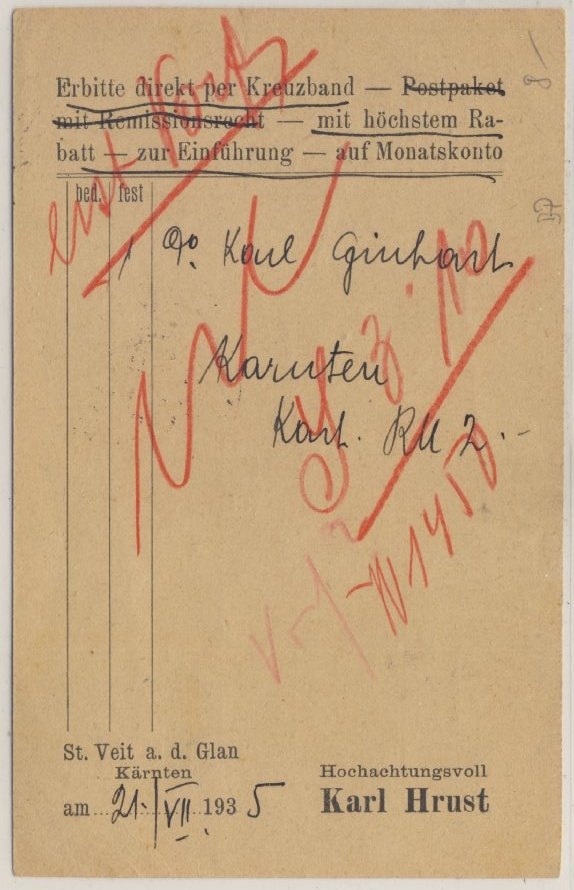 Erbitte direkt per Kreuzband — Postpaket
mit Remissionsrecht — mit höchstem Ra-
batt — zur Einführung — auf Monatskonto
bed. fest
1 Dr. Karl Ginhart
Kärnten
Kart. RM 2.-
N 1450
St. Veit a. d. Glan
Kärnten
am 21. VII. 1935
Hochachtungsvoll
Karl Hrust